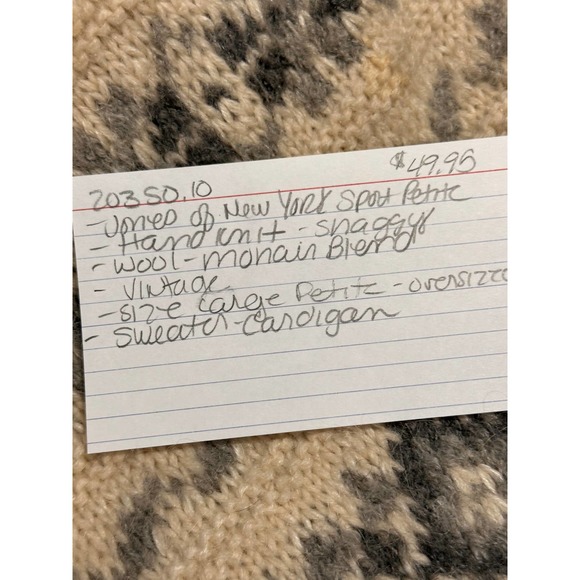 $49.95
203SO.10
- Jones of New York Sport Petite
- Hand knit - shaggy
- Wool - mohair Blend
- Vintage
- Size Large Petite - oversized
- Sweater - Cardigan